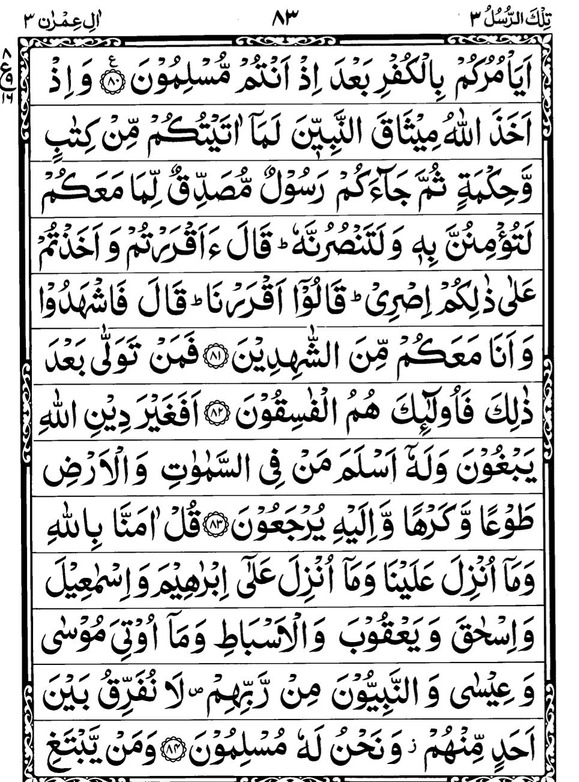 تِلْكَ الرُّسُلُ ٣ ٨٣ اٰلِ عِمْرٰن ٣
اَيَاْمُرُكُمْ بِالْكُفْرِ بَعْدَ اِذْ اَنْتُمْ مُّسْلِمُوْنَ ﴿٨٠﴾ ع وَ اِذْ
٨ ع ١٦
اَخَذَ اللّٰهُ مِيْثَاقَ النَّبِيّٖنَ لَمَاۤ اٰتَيْتُكُمْ مِّنْ كِتٰبٍ
وَّحِكْمَةٍ ثُمَّ جَآءَكُمْ رَسُوْلٌ مُّصَدِّقٌ لِّمَا مَعَكُمْ
لَتُؤْمِنُنَّ بِهٖ وَ لَتَنْصُرُنَّهٗ ؕ قَالَ ءَاَقْرَرْتُمْ وَ اَخَذْتُمْ
عَلٰى ذٰلِكُمْ اِصْرِيْ ؕ قَالُوْۤا اَقْرَرْنَا ؕ قَالَ فَاشْهَدُوْا
وَ اَنَا مَعَكُمْ مِّنَ الشّٰهِدِيْنَ ﴿٨١﴾ فَمَنْ تَوَلّٰى بَعْدَ
ذٰلِكَ فَاُولٰٓئِكَ هُمُ الْفٰسِقُوْنَ ﴿٨٢﴾ اَفَغَيْرَ دِيْنِ اللّٰهِ
يَبْغُوْنَ وَلَهٗۤ اَسْلَمَ مَنْ فِي السَّمٰوٰتِ وَ الْاَرْضِ
طَوْعًا وَّ كَرْهًا وَّ اِلَيْهِ يُرْجَعُوْنَ ﴿٨٣﴾ قُلْ اٰمَنَّا بِاللّٰهِ
وَمَاۤ اُنْزِلَ عَلَيْنَا وَمَاۤ اُنْزِلَ عَلٰۤى اِبْرٰهِيْمَ وَ اِسْمٰعِيْلَ
وَ اِسْحٰقَ وَ يَعْقُوْبَ وَ الْاَسْبَاطِ وَ مَاۤ اُوْتِيَ مُوْسٰى
وَ عِيْسٰى وَ النَّبِيُّوْنَ مِنْ رَّبِّهِمْ ۪ لَا نُفَرِّقُ بَيْنَ
اَحَدٍ مِّنْهُمْ ؗ وَ نَحْنُ لَهٗ مُسْلِمُوْنَ ﴿٨٤﴾ وَمَنْ يَّبْتَغِ